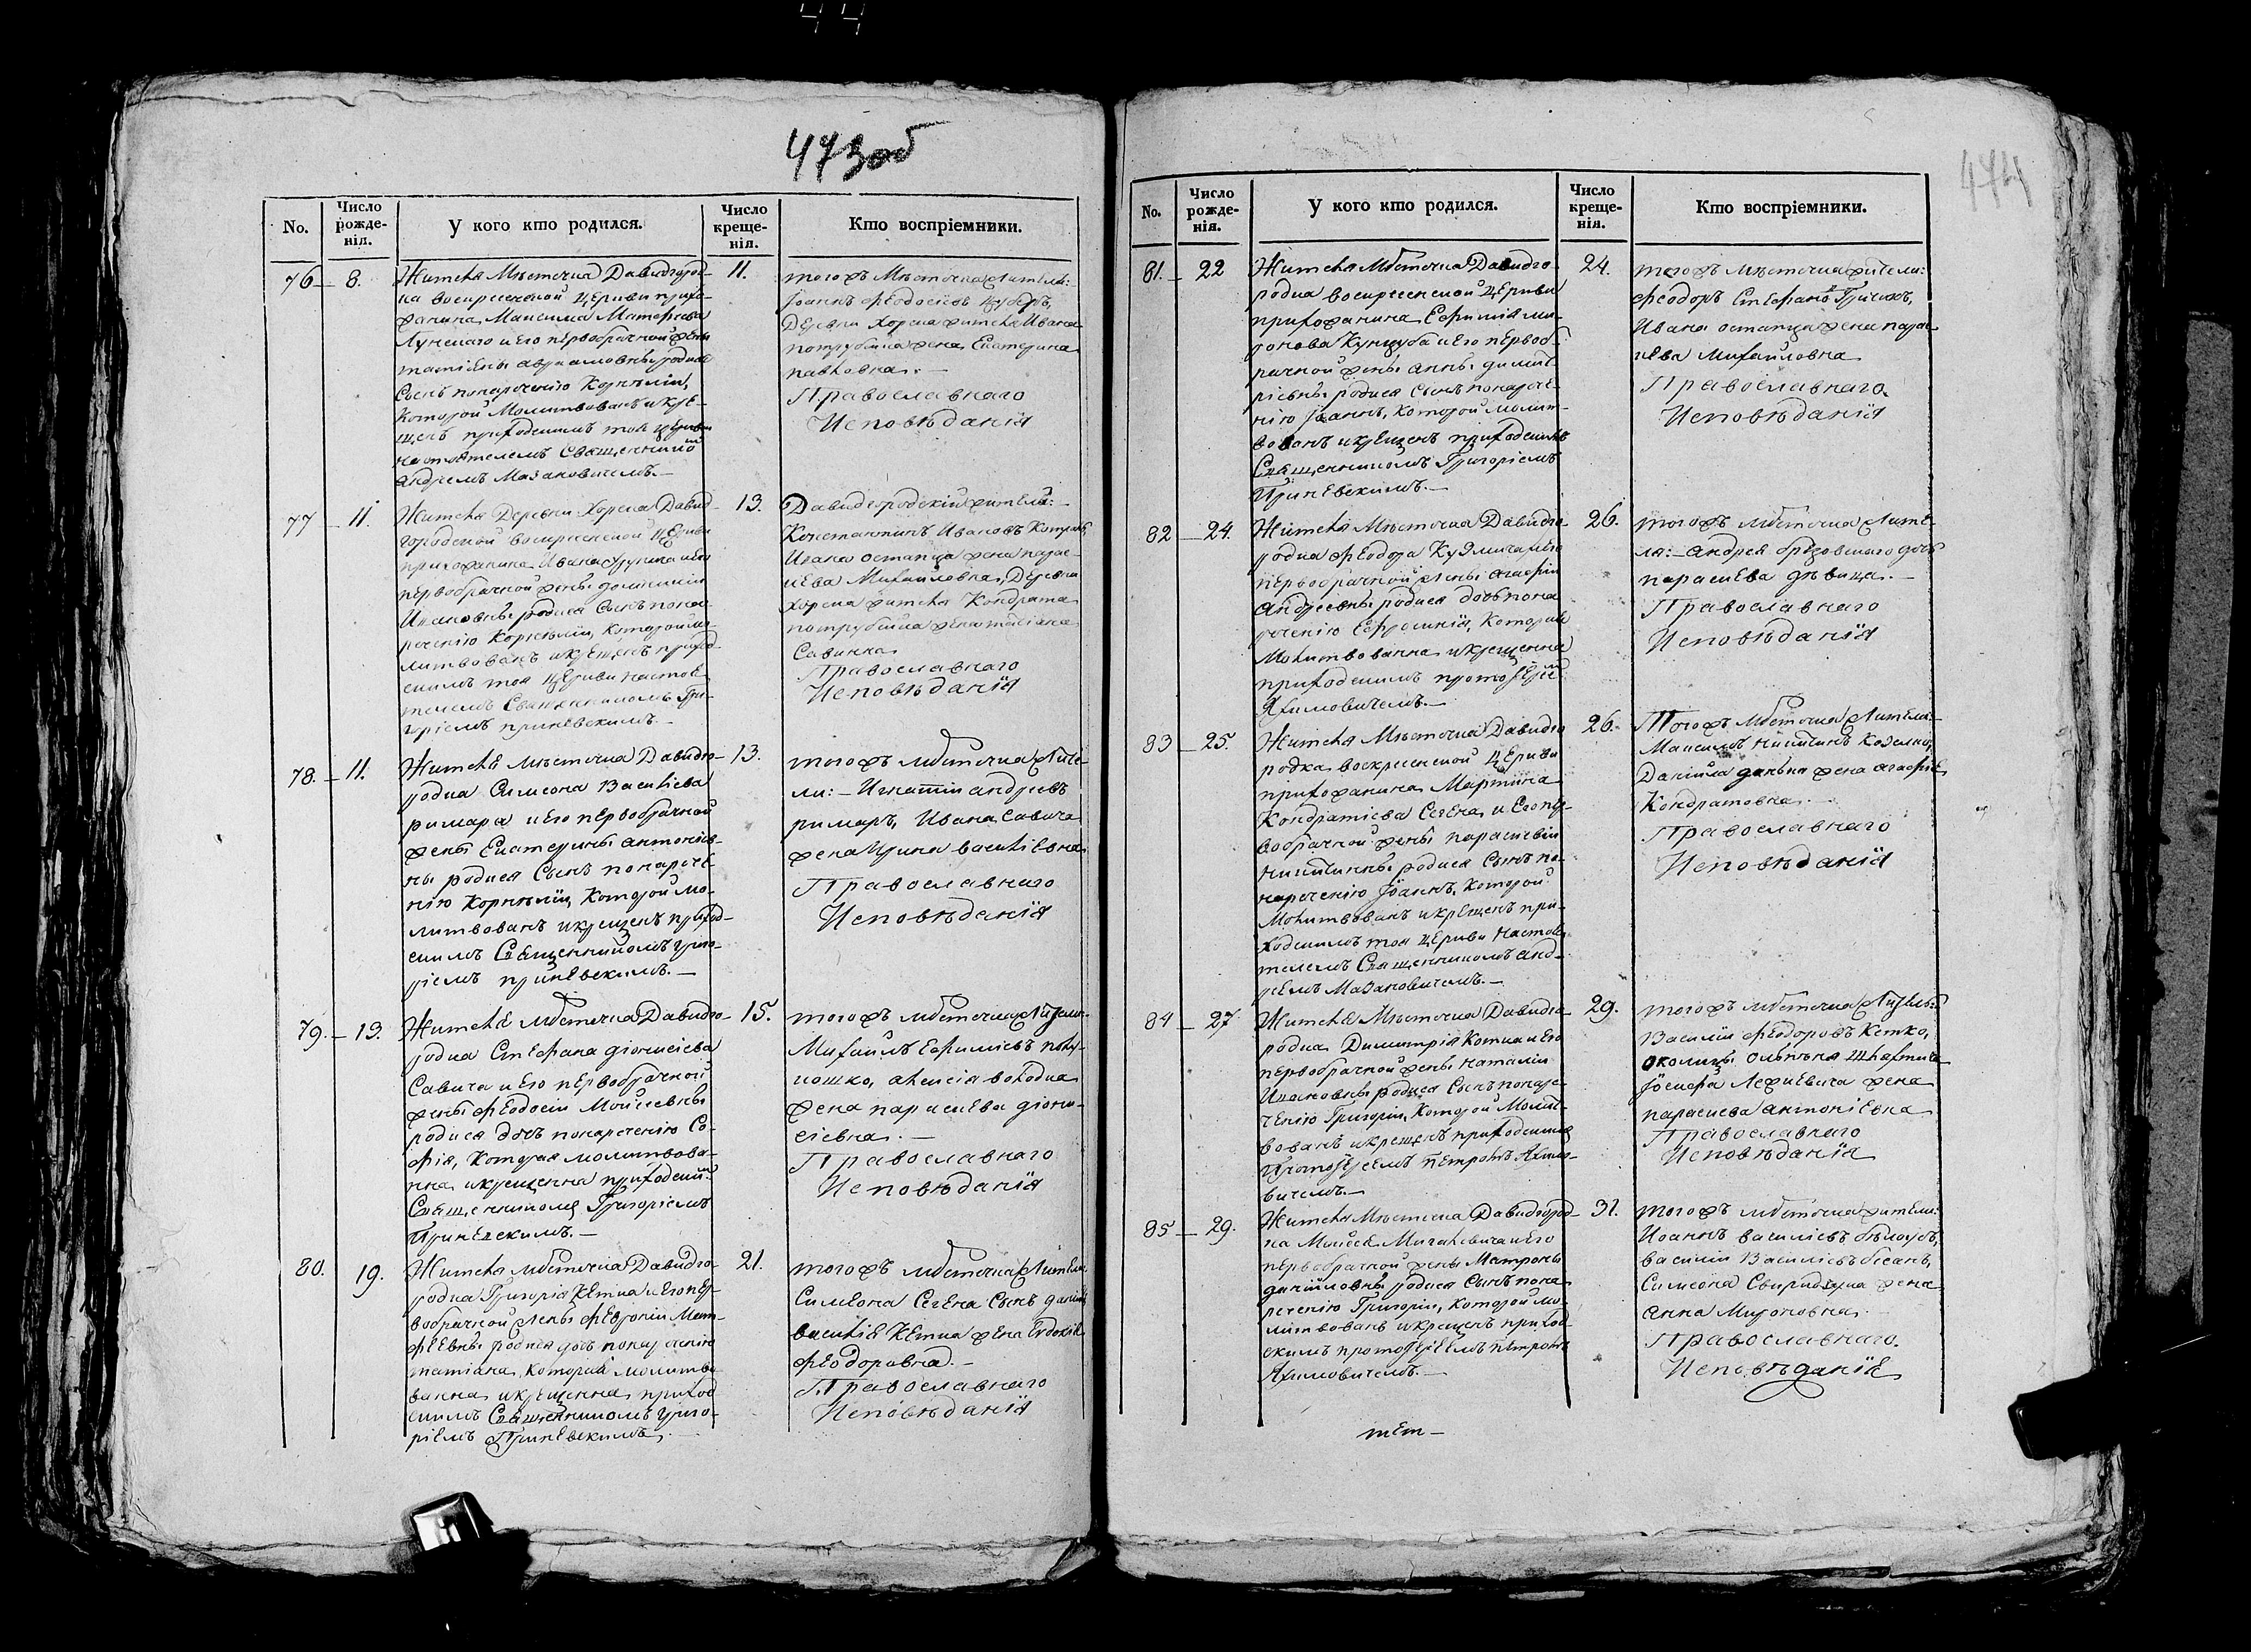 44
473об
No.
Число рожде-нія.
У кого кто родился.
Число креще-нія.
Кто воспріемники.
76 – 8.
Жителя Мѣстечка Давидгород-
ка воскресенской Церкви прихо-
жанина Максима Матфеева
и его первобрачной жены
татіяны авраамовны родися
Сынъ понаречению Корнилій,
Которой Молитвованъ и кре-
щенъ приходскимъ тоя церкви
настоятелемъ Священником
андреемъ Мазановичемъ. –
11.
тогожъ Мѣстечка жители:
Іоаннъ Феодосіевъ
Деревни Хорска жителя Ивана
жена Екатерина
павловна. –
Православнаго
Исповѣданія
77 – 11.
Жителя Деревни Хорска Давид-
городской воскресенской Церкви
прихожанина Ивана и его
первобрачной жены
Ивановны родися Сынъ пона-
речению Корнилій, Которой мо-
литвованъ и крещенъ прихо-
скимъ тоя Церкви настоя-
телемъ Священникомъ Гри-
горіемъ приневскимъ. –
13.
Давидгородскій жители: –
Константинъ Ивановъ
Ивана остапца жена парас-
кева Михайловна, Деревни
Хорска жителя Кондрата
жена татіана
Савична
Православнаго
Исповѣданія
78. – 11.
Жителя мѣстечка Давидго-
родка Симеона Василіева
римара и его первобрачной
жены Екатерины антоніев-
ны родися Сынъ понарече-
нію Корнилій, Которой мо-
литвованъ и крещенъ приход-
скимъ Священникомъ григо-
ріемъ приневскимъ. –
13.
тогожъ мѣстечка жите-
ли: – Игнатій андреевъ
римаръ, Ивана Савича
жена Ирина василіевна
Православнаго
Исповѣданія
79. – 13.
Жителя мѣстечка Давидго-
родка Стефана діонисіева
Савича и его первобрачной
жены Феодосіи Мойсеевны
родися дочь понаречению Со-
фія, Которая молитвова-
нна и крещенна приходским
Священникомъ Григоріемъ
Приневскимъ. –
15.
тогожъ мѣстечка
Михайлъ Ефиміевъ
алексія володка
жена параскева діони-
сіевна. –
Православнаго
Исповѣданія
80. 19.
Жителя мѣстечка Давидго-
родка Григорія Кетка и его пер-
вобрачной жены Февроніи Мат-
феевны родися дочь понаречению
татіана, Которая молитво-
ванна и крещенна приход
скимъ Священникомъ григо-
ріемъ Приневскимъ.
21.
тогожъ мѣстечка жители
Симеона Сегена Сынъ
василія Кетка жена Евдокія
Феодоровна. –
Православнаго
Исповѣданія
474
No.
Число рожде-нія.
У кого кто родился.
Число креще-нія.
Кто воспріемники.
81. – 22
Жителя Мѣстечка Давидго-
родка воскресенской Церкви
прихожанина Ефимія ми-
ронова Кунцуба и его первоб-
рачной жены анны димит-
ріевны родися Сынъ понарече-
нію Іоаннъ, Которой молит-
вованъ и крещенъ приходскимъ
Священникомъ Григоріемъ
Приневскимъ. –
24.
тогожъ мѣстечка жители:
Феодоръ Стефановъ
Ивана остапца жена парас-
кева Михайловна
Православнаго.
Исповѣданія
82 – 24.
Жителя Мѣстечка Давидго-
родка Феодора Кузмича и его
первобрачной жены агафіи
андреевны родися дочь пона
речению Ефросинія, Которая
Молитвованна и крещенна
приходскимъ протоіерее
Якимовичемъ. –
26.
тогожъ мѣстечка жите-
ля: – андрея брезовскаго дочь
параскева дѣвица. –
Православнаго
Исповѣданія
83 – 25.
Жителя Мѣстечка Давидго
родка воскресенской Церкви
прихожанина Мартина
Кондратіева Сегена, и его пер-
вобрачной жены параскевіи
никитичны родися Сынъ по-
наречению Іоаннъ, Которой
Молитвованъ и крещенъ при-
ходскимъ тоя Церкви настоя-
телемъ Священникомъ анд-
реемъ Мазановичемъ. –
26.
Тогожъ мѣстечка жители:
Максимъ никитинъ
Даниила жена агафія
Кондратовна. –
Православнаго
Исповѣданія
84 – 27
Жителя Мѣстечка Давидго-
родка Димитрія Котка и его
первобрачной жены наталіи
Ивановны родися Сынъ понаре-
ченію Григорій, Которой Молит-
вованъ и крещенъ приходскимъ
Протоіереемъ петромъ Якимо-
вичемъ. –
29.
тогожъ мѣстечка
Василій Феодоровъ Кетко,
околицы шляхтича
Іосифа жена
параскева антоніевна
Православнаго
Исповѣданія
85 – 29.
Жителя Мѣстечка Давидгород-
ка Мойсея и его
первобрачной жены Матроны
данииловны родися Сынъ пона
речению Григорій, Которой мо-
литвованъ и крещенъ приход-
скимъ протоіереемъ петромъ
Якимовичемъ. –
31.
тогожъ мѣстечка жители:
Иоаннъ василіевъ
василій Василіевъ
Симеона жена
анна Мироновна.
Православнаго.
Исповѣданія
тет –